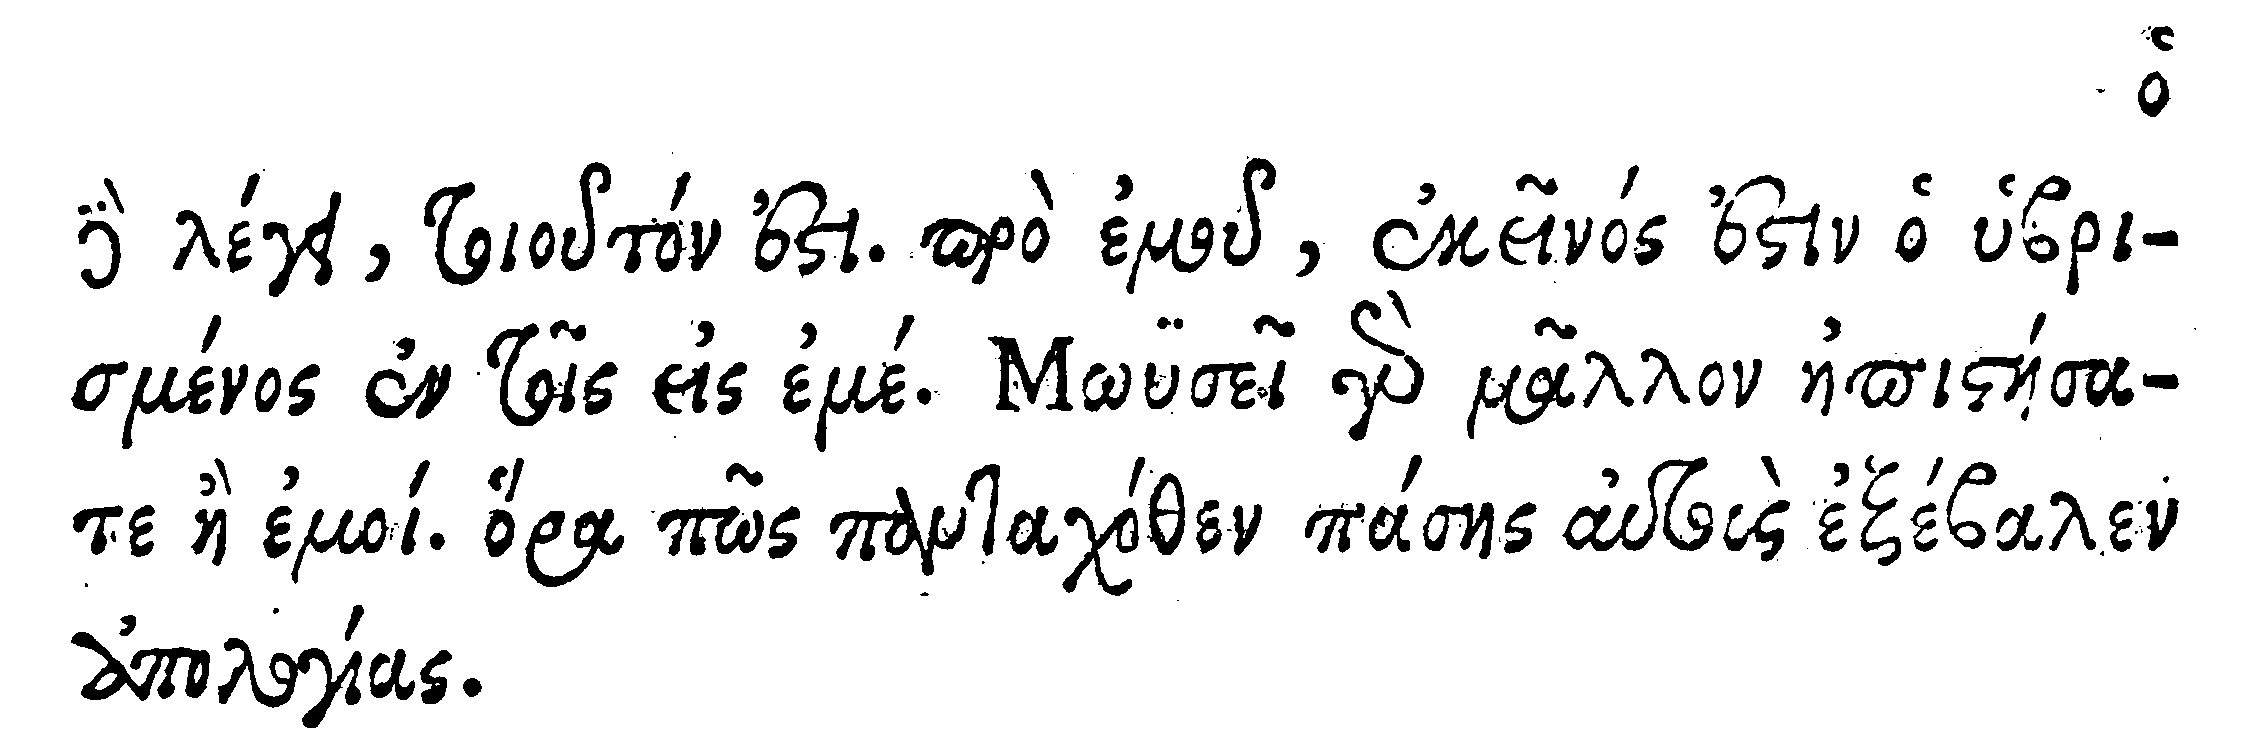 ὁ
δὲ λέγει, τοιοῦτόν ἐστι. πρὸ ἐμοῦ, ἐκεῖνός ἐστιν ὁ ὑβρι-
σμένος ἐν τοῖς εἰς ἐμέ. Μωϋσεῖ γὰρ μᾶλλον ἠπιστήσα-
τε ἢ ἐμοί. ὅρα πῶς πανταχόθεν πάσης αὐτοὺς ἐξέβαλεν
ἀπολογίας.